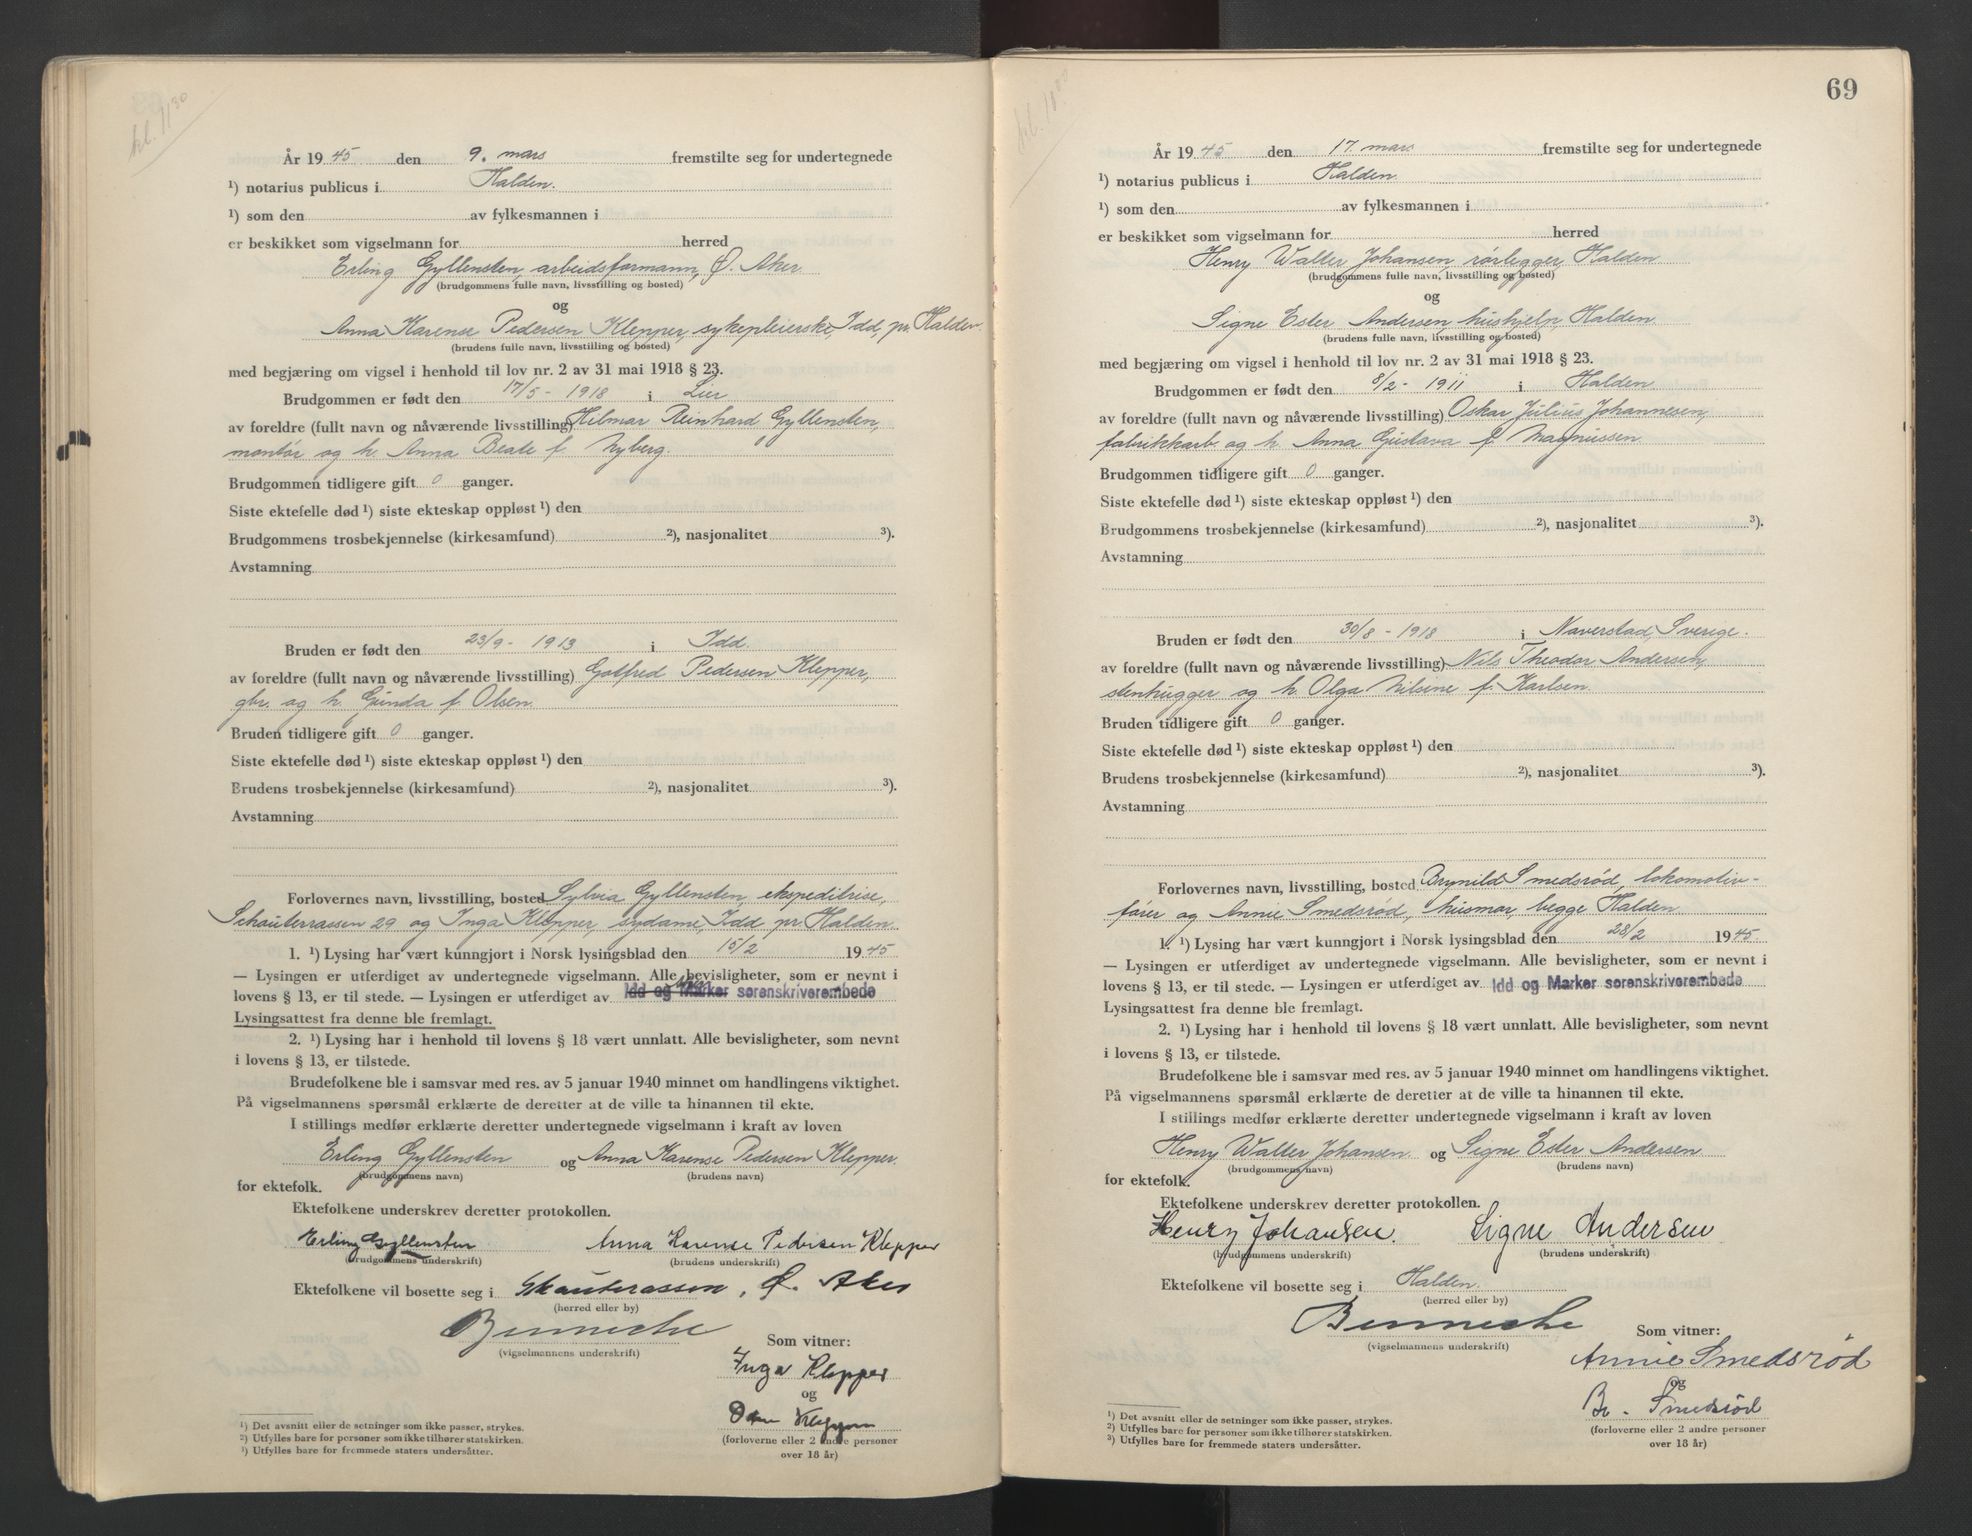 kl. 11³⁰
År 19 45 den 9. mars fremstilte seg for undertegnede
¹) notarius publicus i Halden.
¹) som den av fylkesmannen i
er beskikket som vigselmann for herred
Erling Gyllensten, arbeidsformann, Ø. Aker
(brudgommens fulle navn, livsstilling og bosted)
og
Anna Karense Pedersen Klepper, sykepleierske, Idd, pr. Halden.
(brudens fulle navn, livsstilling og bosted)
med begjæring om vigsel i henhold til lov nr. 2 av 31 mai 1918 § 23.
Brudgommen er født den 17/5 - 1918 i Lier
av foreldre (fullt navn og nåværende livsstilling) Hilmar Reinhard Gyllensten,
montør og h. Anna Beate f. Nyberg.
Brudgommen tidligere gift 0 ganger.
Siste ektefelle død ¹) siste ekteskap oppløst ¹) den
Brudgommens trosbekjennelse (kirkesamfund) ²), nasjonalitet ³).
Avstamning
Bruden er født den 23/9 - 1913 i Idd.
av foreldre (fullt navn og nåværende livsstilling) Gotfred Pedersen Klepper,
gbr. og h. Gunda f. Olsen.
Bruden tidligere gift 0 ganger.
Siste ektefelle død ¹) siste ekteskap oppløst ¹) den
Brudens trosbekjennelse (kirkesamfund) ²), nasjonalitet ³).
Avstamning
Forlovernes navn, livsstilling, bosted Sylvia Gyllensten, ekspeditrise,
Schauterrassen 29 og Inga Klepper, sydame, Idd pr. Halden.
1. ¹) Lysing har vært kunngjort i Norsk lysingsblad den 15/2 19 45
— Lysingen er utferdiget av undertegnede vigselmann. Alle bevisligheter, som er nevnt i
lovens § 13, er til stede. — Lysingen er utferdiget av Idd og Marker sorenskriverembede
Lysingsattest fra denne ble fremlagt.
2. ¹) Lysing har i henhold til lovens § 18 vært unnlatt. Alle bevisligheter, som nevnt
i lovens § 13, er tilstede.
Brudefolkene ble i samsvar med res. av 5 januar 1940 minnet om handlingens viktighet.
På vigselmannens spørsmål erklærte de deretter at de ville ta hinannen til ekte.
I stillings medfør erklærte deretter undertegnede vigselmann i kraft av loven
Erling Gyllensten og Anna Karense Pedersen Klepper.
(brudgommens navn) (brudens navn)
for ektefolk.
Ektefolkene underskrev deretter protokollen.
Erling Gyllensten Anna Karense Pedersen Klepper
(brudgommens underskrift) (brudens underskrift)
Ektefolkene vil bosette seg i Skauterassen, Ø. Aker
(herred eller by)
Benneche
(vigselmannens underskrift)
Som vitner:
Inga Klepper
og
Klepper
(forloverne eller 2 andre personer
over 18 år)
¹) Det avsnitt eller de setninger som ikke passer, strykes.
²) Utfylles bare for personer som ikke tilhører statskirken.
³) Utfylles bare for fremmede staters undersåtter.
69
kl. 18⁰⁰
År 19 45 den 17. mars fremstilte seg for undertegnede
¹) notarius publicus i Halden.
¹) som den av fylkesmannen i
er beskikket som vigselmann for herred
Henry Walter Johansen, rørlegger, Halden
(brudgommens fulle navn, livsstilling og bosted)
og
Signe Ester Andersen, hushjelp, Halden.
(brudens fulle navn, livsstilling og bosted)
med begjæring om vigsel i henhold til lov nr. 2 av 31 mai 1918 § 23.
Brudgommen er født den 8/2 - 1911 i Halden
av foreldre (fullt navn og nåværende livsstilling) Oskar Julius Johannesen,
fabrikkarb. og h. Anna Gustava f. Magnussen
Brudgommen tidligere gift 0 ganger.
Siste ektefelle død ¹) siste ekteskap oppløst ¹) den
Brudgommens trosbekjennelse (kirkesamfund) ²), nasjonalitet ³).
Avstamning
Bruden er født den 30/8 - 1918 i Naverstad, Sverige.
av foreldre (fullt navn og nåværende livsstilling) Nils Theodor Andersen,
stenhugger og h. Olga Nilsine f. Karlsen.
Bruden tidligere gift 0 ganger.
Siste ektefelle død ¹) siste ekteskap oppløst ¹) den
Brudens trosbekjennelse (kirkesamfund) ²), nasjonalitet ³).
Avstamning
Forlovernes navn, livsstilling, bosted Brynild Smedsrød, lokomotiv-
fører og Annie Smedsrød, husmor, begge Halden
1. ¹) Lysing har vært kunngjort i Norsk lysingsblad den 28/2 19 45.
— Lysingen er utferdiget av undertegnede vigselmann. Alle bevisligheter, som er nevnt i
lovens § 13, er til stede. — Lysingen er utferdiget av Idd og Marker sorenskriverembede
Lysingsattest fra denne ble fremlagt.
2. ¹) Lysing har i henhold til lovens § 18 vært unnlatt. Alle bevisligheter, som nevnt
i lovens § 13, er tilstede.
Brudefolkene ble i samsvar med res. av 5 januar 1940 minnet om handlingens viktighet.
På vigselmannens spørsmål erklærte de deretter at de ville ta hinannen til ekte.
I stillings medfør erklærte deretter undertegnede vigselmann i kraft av loven
Henry Walter Johansen og Signe Ester Andersen
(brudgommens navn) (brudens navn)
for ektefolk.
Ektefolkene underskrev deretter protokollen.
Henry Johansen. Signe Andersen
(brudgommens underskrift) (brudens underskrift)
Ektefolkene vil bosette seg i Halden.
(herred eller by)
Benneche
(vigselmannens underskrift)
Som vitner:
Annie Smedsrød
og
Br. Smedsrød
(forloverne eller 2 andre personer
over 18 år)
¹) Det avsnitt eller de setninger som ikke passer, strykes.
²) Utfylles bare for personer som ikke tilhører statskirken.
³) Utfylles bare for fremmede staters undersåtter.